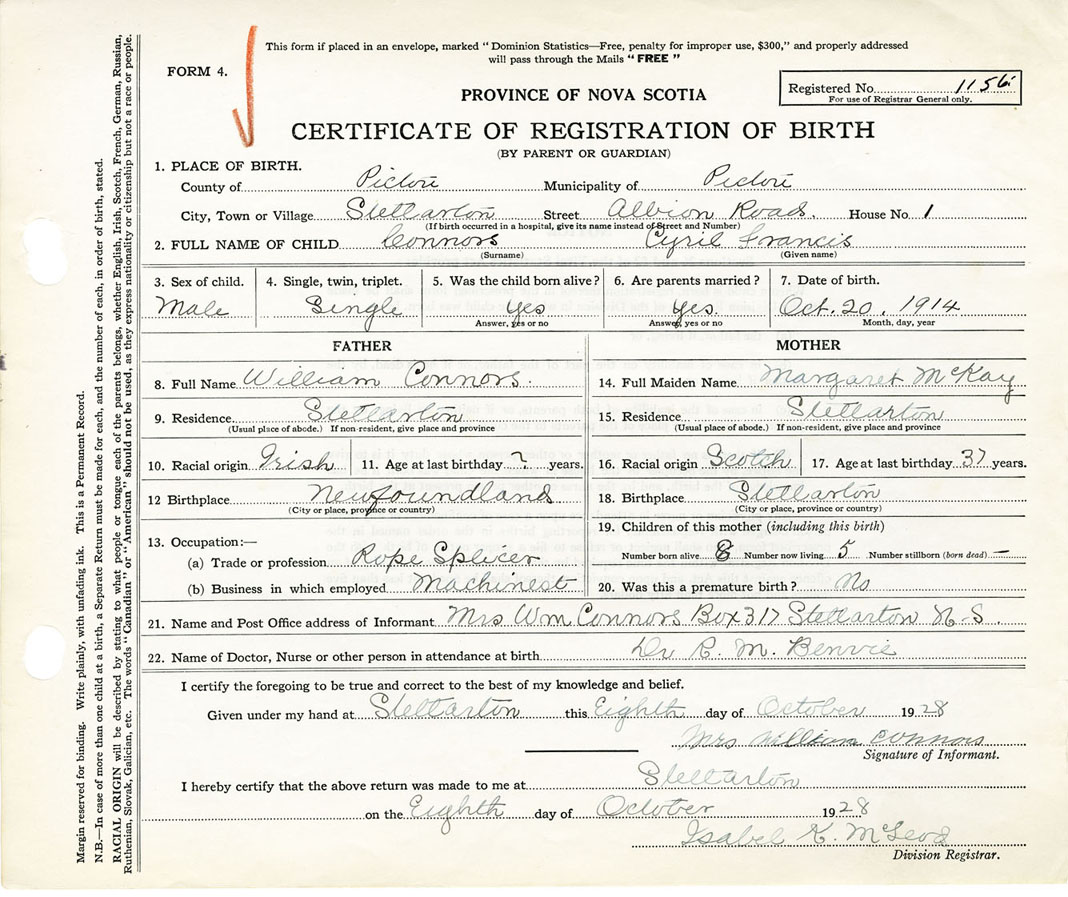 This form if placed in an envelope, marked "Dominion Statistics—Free, penalty for improper use, $300," and properly addressed
will pass through the Mails "FREE"
FORM 4.
Registered No. 1156
For use of Registrar General only.
PROVINCE OF NOVA SCOTIA
CERTIFICATE OF REGISTRATION OF BIRTH
(BY PARENT OR GUARDIAN)
1. PLACE OF BIRTH.
County of Pictou Municipality of Pictou
City, Town or Village Stellarton Street Albion Road. House No 1
(If birth occurred in a hospital, give its name instead of Street and Number)
2. FULL NAME OF CHILD Connors Cyril Francis
(Surname) (Given name)
3. Sex of child. 4. Single, twin, triplet. 5. Was the child born alive? 6. Are parents married? 7. Date of birth.
Male Single Yes Yes. Oct. 20, 1914
Answer, yes or no Answer, yes or no Month, day, year
FATHER MOTHER
8. Full Name William Connors. 14. Full Maiden Name Margaret McKay
9. Residence Stellarton 15. Residence Stellarton
(Usual place of abode.) If non-resident, give place and province (Usual place of abode.) If non-resident, give place and province
10. Racial origin Irish 11. Age at last birthday ? years. 16. Racial origin Scotch 17. Age at last birthday 37 years.
12 Birthplace Newfoundland 18. Birthplace Stellarton
(City or place, province or country) (City or place, province or country)
19. Children of this mother (including this birth)
13. Occupation:—
Number born alive 8 Number now living 5 Number stillborn (born dead) —
(a) Trade or profession Rope Splicer
(b) Business in which employed Machinest 20. Was this a premature birth? No
21. Name and Post Office address of Informant Mrs Wm Connors Box 317 Stellarton N-S
22. Name of Doctor, Nurse or other person in attendance at birth Dr R. M. Benvie
I certify the foregoing to be true and correct to the best of my knowledge and belief.
Given under my hand at Stellarton this Eighth day of October 1928
Mrs William Connors
Signature of Informant.
I hereby certify that the above return was made to me at Stellarton
on the Eighth day of October 1928
Isabel K. McLeod
Division Registrar.
Margin reserved for binding. Write plainly, with unfading ink. This is a Permanent Record.
N.B.—In case of more than one child at a birth, a Separate Return must be made for each, and the number of each, in order of birth, stated.
RACIAL ORIGIN will be described by stating to what people or tongue each of the parents belongs, whether English, Irish, Scotch, French, German, Russian,
Ruthenian, Slovak, Galician, etc. The words "Canadian" or "American" should not be used, as they express nationality or citizenship but not a race or people.